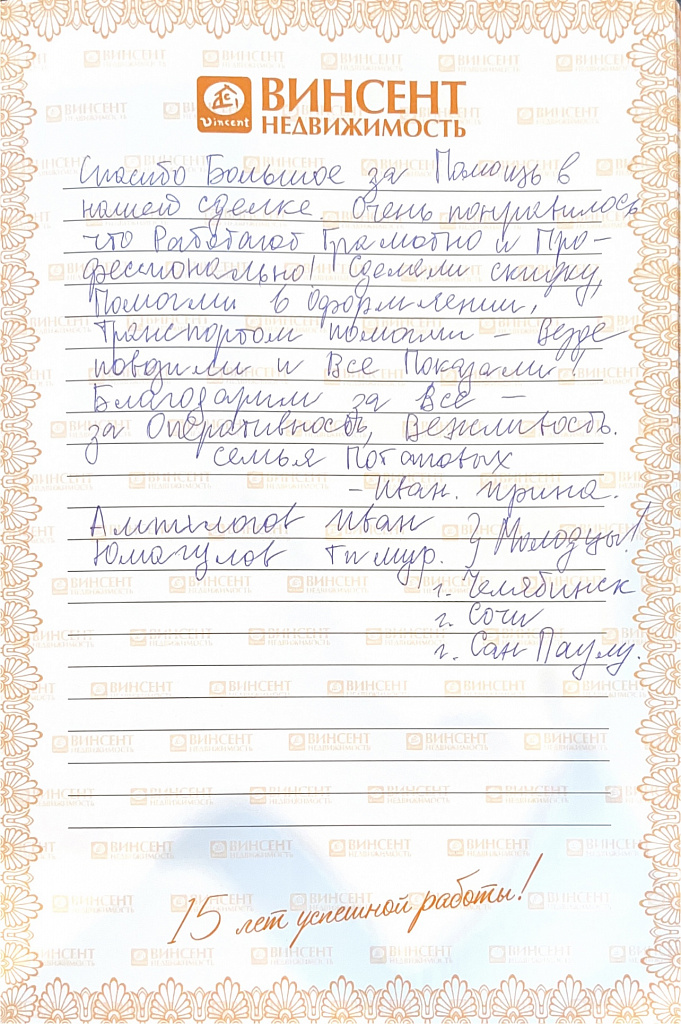 Vincent
ВИНСЕНТ
НЕДВИЖИМОСТЬ
Спасибо Большое за Помощь в
нашей сделке. Очень понравилось
что Работают Грамотно и Про-
фессионально! Сделали скидку,
Помогли в оформлении,
Транспортом помогли – Везде
повозили и Все Показали!
Благодарим за Все –
за Оперативность, Вежливость.
семья Потаповых
– Иван. Ирина.
Иван } Молодцы!
Юмагулов Тимур.
г. Челябинск
г. Сочи
г. Сан Паулу.
15 лет успешной работы!